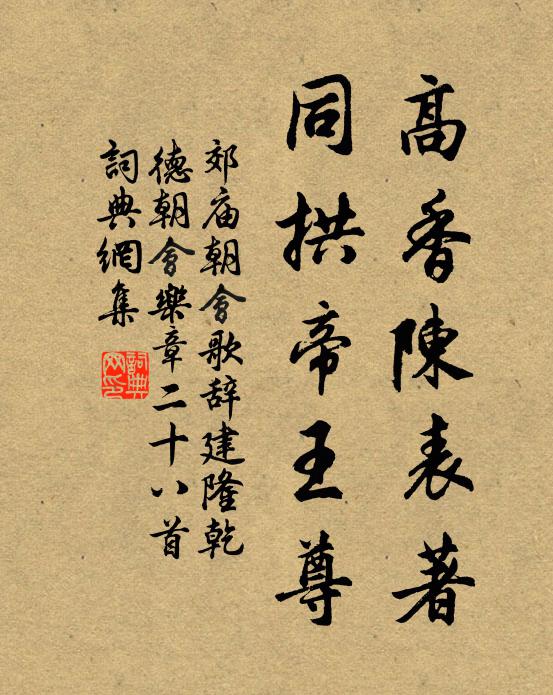 高香陳表著
同拱帝王尊
郊庙朝會歌辞建隆乾
德朝會樂章二十八首
詞典網集
詞典
网印